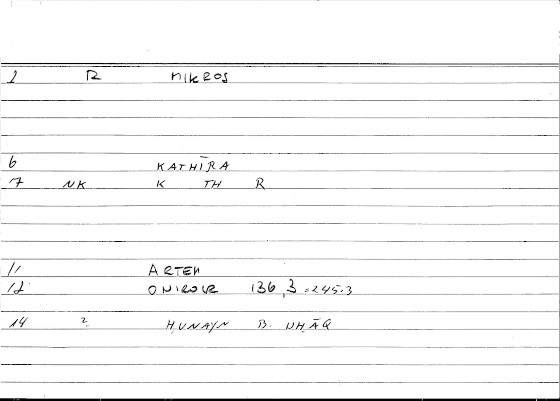 1 R MIKROS
6 KATHĪRA
7 NK K TH R
11 ARTEM
12 ONIROCR 136,3 = 245.3
14 2 ḤUNAYN B.